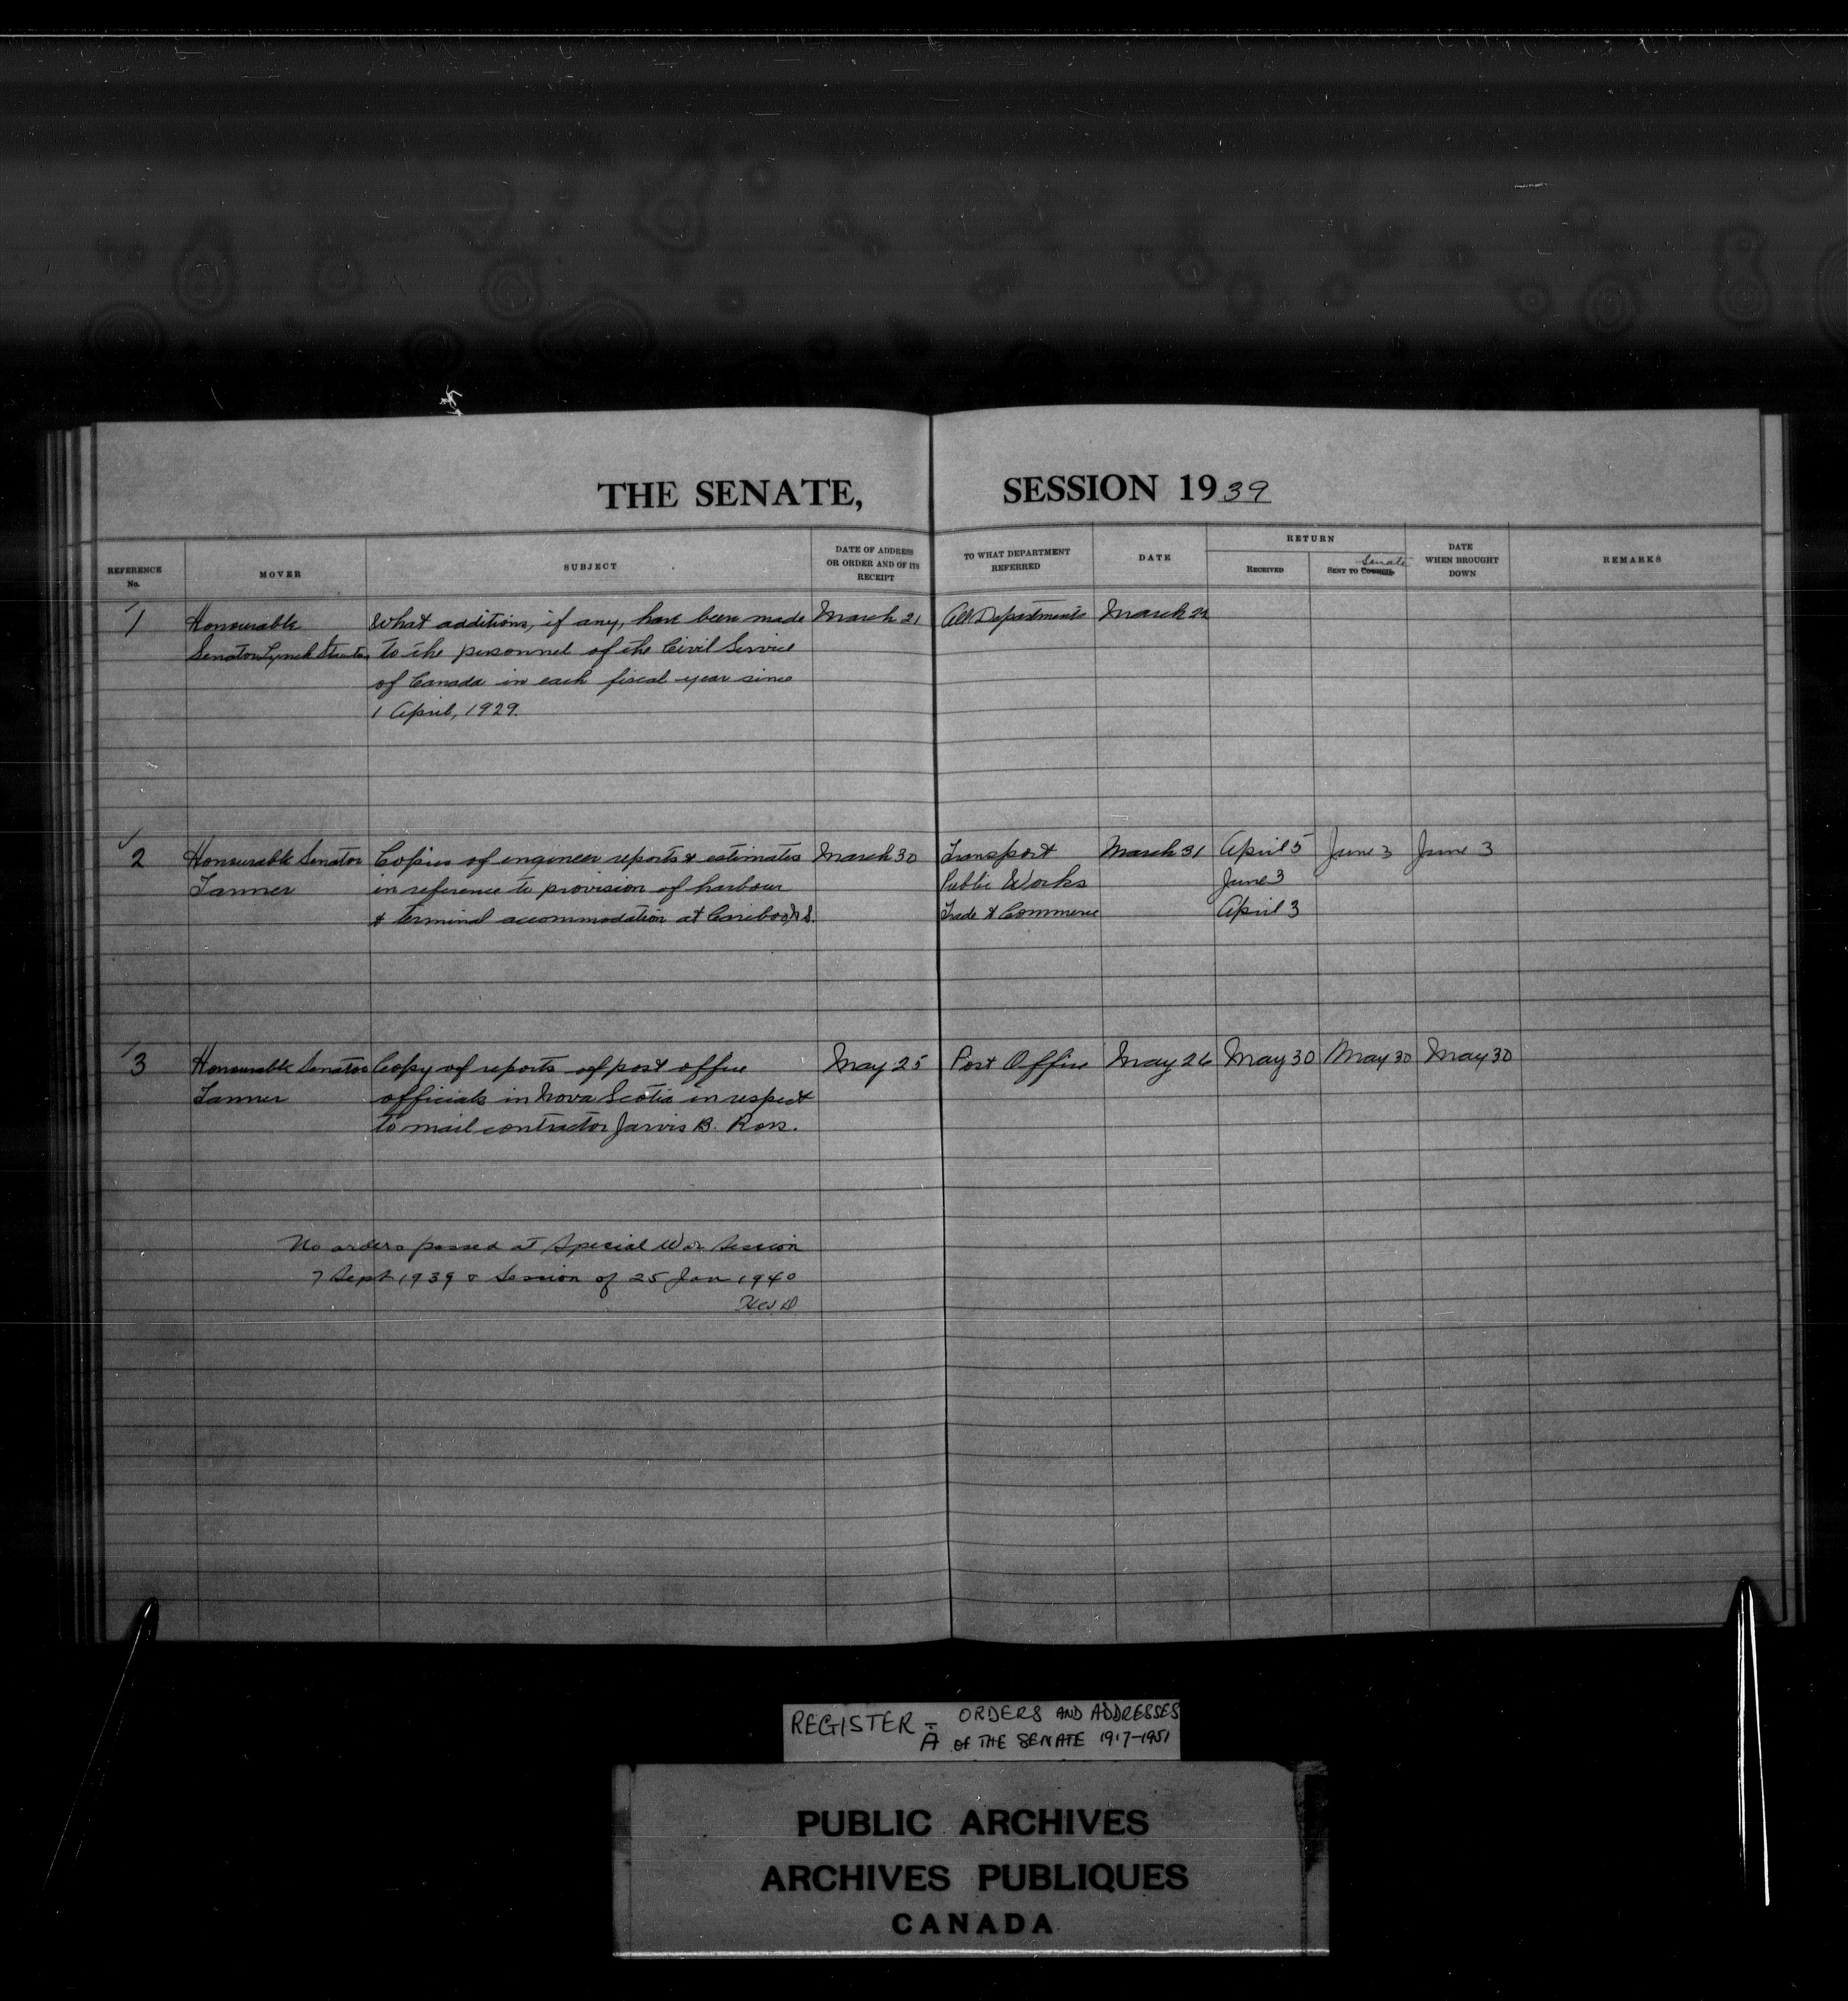 THE SENATE, SESSION 1939
REFERENCE No. MOVER SUBJECT DATE OF ADDRESS OR ORDER AND OF ITS RECEIPT TO WHAT DEPARTMENT REFERRED DATE RETURN RECEIVED SENT TO COUNCIL Senate DATE WHEN BROUGHT DOWN REMARKS
1 Honourable What additions, if any, have been made March 21 All Departments March 22
Senator Lynch Staunton to the personnel of the Civil Service
of Canada in each fiscal year since
1 April, 1929.
2 Honourable Senator Copies of engineer reports & estimates March 30 Transport March 31 April 5 June 3 June 3
Tanner in reference to provision of harbour Public Works June 3
& terminal accommodation at Caribou, N.S. Trade & Commerce April 3
3 Honourable Senator Copy of reports of post office May 25 Post Office May 26 May 30 May 30 May 30
Tanner officials in Nova Scotia in respect
to mail contractor Jarvis B. Ross.
No orders passed at Special War Session
7 Sept 1939 & Session of 25 Jan 1940
REGISTER - ORDERS AND ADDRESSES
A OF THE SENATE 1917-1951
PUBLIC ARCHIVES
ARCHIVES PUBLIQUES
CANADA